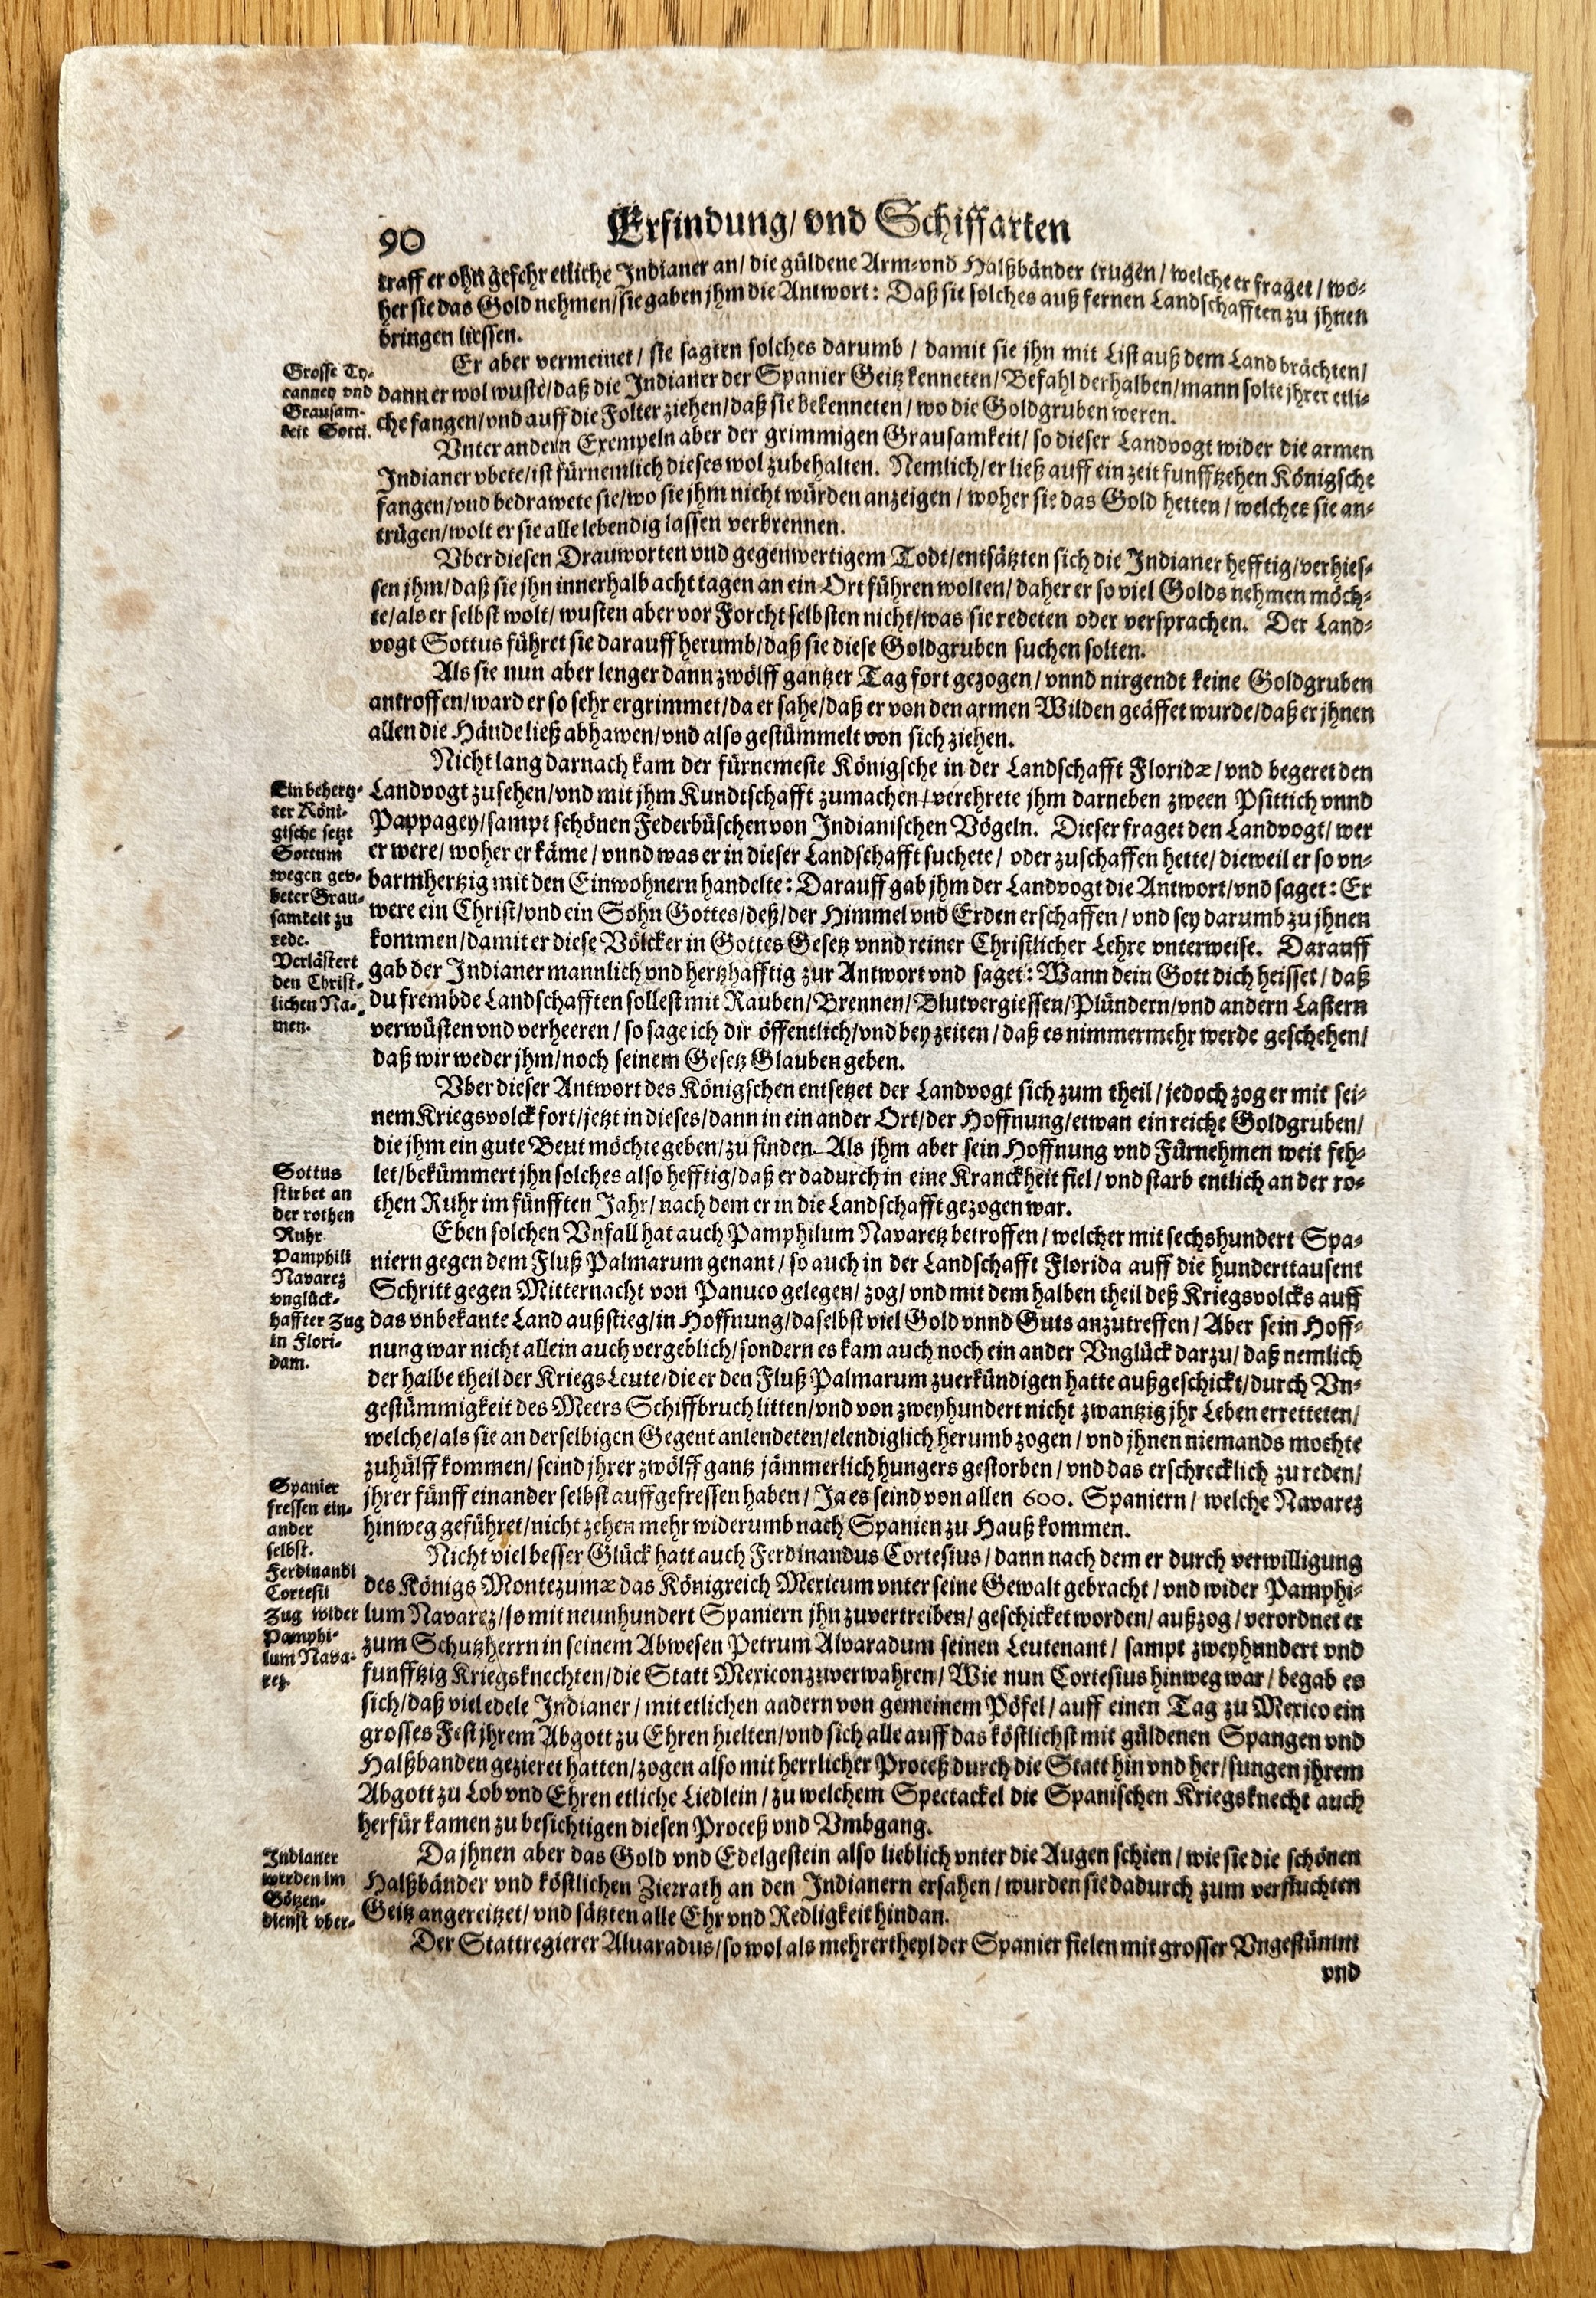 90
Erfindung/ vnd Schiffarten
traff er ohn gefehr etliche Indianer an/ die güldene Arm-vnd Halßbänder trugen/ welche er fraget/ wo-
her sie das Gold nehmen/ sie gaben jhm die Antwort: Daß sie solches auß fernen Landschafften zu jhnen
bringen liessen.
Grosse Ty-
ranney vnd
Grausam-
keit Sotti.
Er aber vermeinet/ sie sagten solches darumb/ damit sie jhn mit List auß dem Land brächten/
dann er wol wuste/ daß die Indianer der Spanier Geitz kenneten/ Befahl derhalben/ mann solte jhrer etli-
che fangen/ vnd auff die Folter ziehen/ daß sie bekenneten/ wo die Goldgruben weren.
Vnter andern Exempeln aber der grimmigen Grausamkeit/ so dieser Landvogt wider die armen
Indianer vbete/ ist fürnemlich dieses wol zubehalten. Nemlich/ er ließ auff ein zeit funfftzehen Königsche
fangen/ vnd bedrawete sie/ wo sie jhm nicht würden anzeigen/ woher sie das Gold hetten/ welches sie an-
trügen/ wolt er sie alle lebendig lassen verbrennen.
Vber diesen Drauworten vnd gegenwertigem Todt/ entsätzten sich die Indianer hefftig/ verhies-
sen jhm/ daß sie jhn innerhalb acht tagen an ein Ort führen wolten/ daher er so viel Golds nehmen möch-
te/ als er selbst wolt/ wusten aber vor Forcht selbsten nicht/ was sie redeten oder versprachen. Der Land-
vogt Sottus führet sie darauff herumb/ daß sie diese Goldgruben suchen solten.
Als sie nun aber lenger dann zwölff gantzer Tag fort gezogen/ vnnd nirgendt keine Goldgruben
antroffen/ ward er so sehr ergrimmet/ da er sahe/ daß er von den armen Wilden geäffet wurde/ daß er jhnen
allen die Hände ließ abhawen/ vnd also gestümmelt von sich ziehen.
Ein behertz-
ter Köni-
gische setzt
Sottum
wegen geü-
beter Grau-
samkeit zu
rede.
Verlästert
den Christ-
lichen Na-
men.
Nicht lang darnach kam der fürnemeste Königsche in der Landschafft Floridæ/ vnd begeret den
Landvogt zusehen/ vnd mit jhm Kundtschafft zumachen/ verehrete jhm darneben zween Psittich vnnd
Pappagey/ sampt schönen Federbüschen von Indianischen Vögeln. Dieser fraget den Landvogt/ wer
er were/ woher er käme/ vnnd was er in dieser Landschafft suchete/ oder zuschaffen hette/ dieweil er so vn-
barmhertzig mit den Einwohnern handelte: Darauff gab jhm der Landvogt die Antwort/ vnd saget: Er
were ein Christ/ vnd ein Sohn Gottes/ deß/ der Himmel vnd Erden erschaffen/ vnd sey darumb zu jhnen
kommen/ damit er diese Völcker in Gottes Gesetz vnnd reiner Christlicher Lehre vnterweise. Darauff
gab der Indianer mannlich vnd hertzhafftig zur Antwort vnd saget: Wann dein Gott dich heisset/ daß
du frembde Landschafften sollest mit Rauben/ Brennen/ Blutvergiessen/ Plündern/ vnd andern Lastern
verwüsten vnd verheeren/ so sage ich dir öffentlich/ vnd bey zeiten/ daß es nimmermehr werde geschehen/
daß wir weder jhm/ noch seinem Gesetz Glauben geben.
Vber dieser Antwort des Königschen entsetzet der Landvogt sich zum theil/ jedoch zog er mit sei-
nem Kriegsvolck fort/ jetzt in dieses/ dann in ein ander Ort/ der Hoffnung/ etwan ein reiche Goldgruben/
die jhm ein gute Beut möchte geben/ zu finden. Als jhm aber sein Hoffnung vnd Fürnehmen weit feh-
let/ bekümmert jhn solches also hefftig/ daß er dadurch in eine Kranckheit fiel/ vnd starb entlich an der ro-
then Ruhr im fünfften Jahr/ nach dem er in die Landschafft gezogen war.
Sottus
stirbet an
der rothen
Ruhr.
Pamphili
Navarez
vnglück-
haffter Zug
in Flori-
dam.
Eben solchen Vnfall hat auch Pamphilum Navaretz betroffen/ welcher mit sechshundert Spa-
niern gegen dem Fluß Palmarum genant/ so auch in der Landschafft Florida auff die hunderttausent
Schritt gegen Mitternacht von Panuco gelegen/ zog/ vnd mit dem halben theil deß Kriegsvolcks auff
das vnbekante Land außstieg/ in Hoffnung/ daselbst viel Gold vnnd Guts anzutreffen/ Aber sein Hoff-
nung war nicht allein auch vergeblich/ sondern es kam auch noch ein ander Vnglück darzu/ daß nemlich
der halbe theil der Kriegs Leute/ die er den Fluß Palmarum zuerkündigen hatte außgeschickt/ durch Vn-
gestümmigkeit des Meers Schiffbruch litten/ vnd von zweyhundert nicht zwantzig jhr Leben erretteten/
welche/ als sie an derselbigen Gegent anlendeten/ elendiglich herumb zogen/ vnd jhnen niemands mochte
zuhülff kommen/ seind jhrer zwölff gantz jämmerlich hungers gestorben/ vnd das erschrecklich zu reden/
jhrer fünff einander selbst auffgefressen haben/ Ja es seind von allen 600. Spaniern/ welche Navarez
hinweg geführet/ nicht zehen mehr widerumb nach Spanien zu Hauß kommen.
Spanier
fressen ein-
ander
selbst.
Ferdinandi
Cortesii
Zug wider
Pamphi-
lum Nava-
rez.
Nicht viel besser Glück hatt auch Ferdinandus Cortesius/ dann nach dem er durch verwilligung
des Königs Montezumæ das Königreich Mexicum vnter seine Gewalt gebracht/ vnd wider Pamphi-
lum Navarez/ so mit neunhundert Spaniern jhn zuvertreiben/ geschicket worden/ außzog/ verordnet er
zum Schutzherrn in seinem Abwesen Petrum Alvaradum seinen Leutenant/ sampt zweyhundert vnd
funfftzig Kriegsknechten/ die Statt Mexicon zuverwahren/ Wie nun Cortesius hinweg war/ begab es
sich/ daß viel edele Indianer/ mit etlichen andern von gemeinem Pöfel/ auff einen Tag zu Mexico ein
grosses Fest jhrem Abgott zu Ehren hielten/ vnd sich alle auff das köstlichst mit güldenen Spangen vnd
Halßbanden gezieret hatten/ zogen also mit herrlicher Proceß durch die Statt hin vnd her/ sungen jhrem
Abgott zu Lob vnd Ehren etliche Liedlein/ zu welchem Spectackel die Spanischen Kriegsknecht auch
herfür kamen zu besichtigen diesen Proceß vnd Vmbgang.
Indianer
werden im
Götzen-
dienst vber-
Da jhnen aber das Gold vnd Edelgestein also lieblich vnter die Augen schien/ wie sie die schönen
Halßbänder vnd köstlichen Zierrath an den Indianern ersahen/ wurden sie dadurch zum verfluchten
Geitz angereitzet/ vnd sätzten alle Ehr vnd Redligkeit hindan.
Der Stattregierer Aluaradus/ so wol als mehrertheyl der Spanier fielen mit grosser Vngestümm
vnd